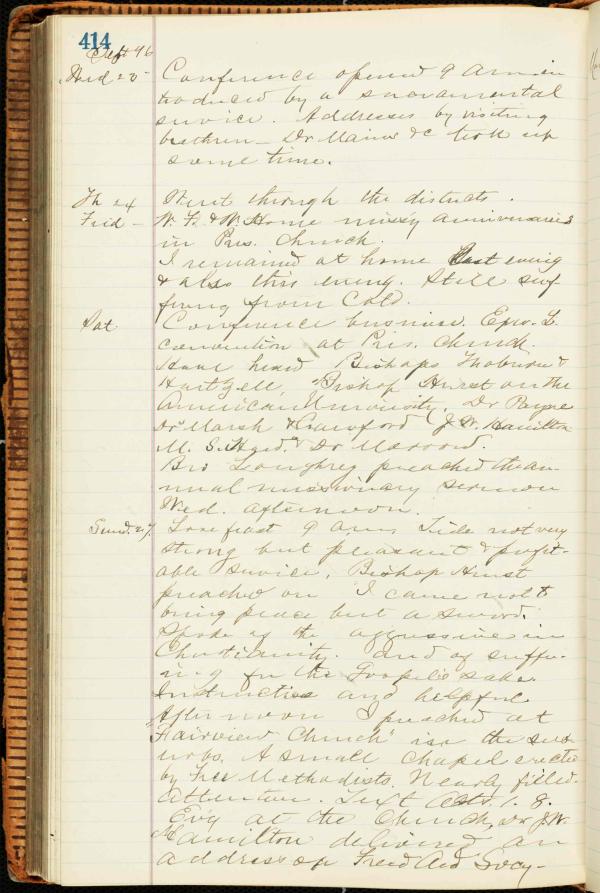 414
Sept 96
Wed 23 - Conference opened 9 Am in
troduced by a sacramental
service. Addresses by visiting
brethren - Dr Mains &c took up
some time.
Th 24 Went through the districts.
Frid - W. F. & W. Home missy anniversaries
in Pres. Church.
I remained at home last evening
& also this evening. Still suf
fering from Cold.
Sat Conference business. Epw. L.
convention at Pres. Church.
Have heard Bishops Thoburn &
Hartzell, Bishop Hurst on the
American University, Dr Payne
Dr Marsh & Crawford J. W. Hamilton
M. S. Hard. & Dr
Bro Loughrey preached the an
nual missionary sermon
Wed. afternoon.
Sund. 27. Love feast 9 am, Tide not very
strong but pleasant & profit-
able service. Bishop Hurst
preached on "I came not to
bring peace but a sword.
Spoke of the aggressive in
Christianity. And of suffer-
ing for the Gospel's sake.
Instructive and helpful.
Afternoon I preached at
"Fairview Church" in the sub
urbs. A small chapel erected
by Free Methodists. Nearly filled.
Attentive. Text Acts. 1. 8.
Evg at the Church, Dr J. W.
Hamilton delivered an
address on Freed Aid Socy-